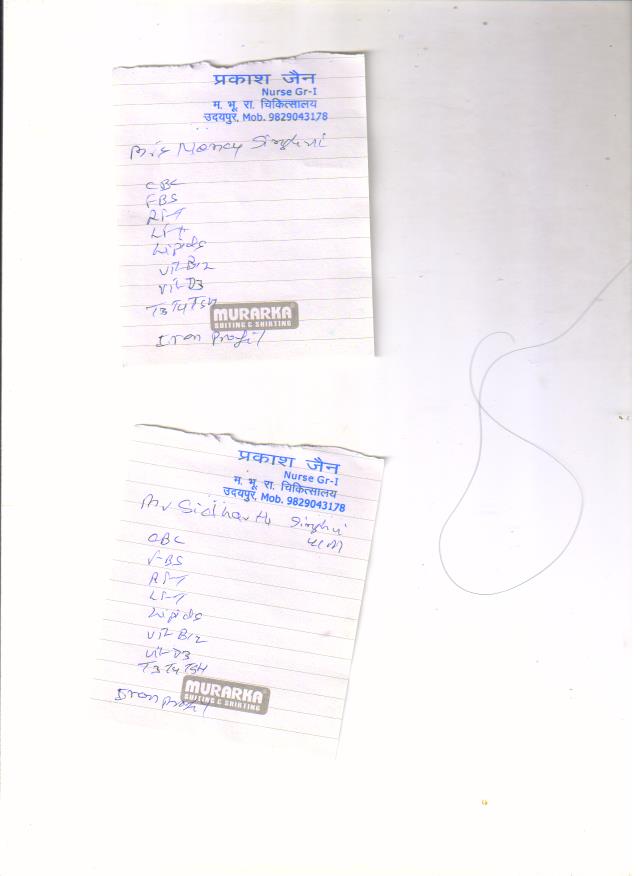 प्रकाश जैन
Nurse Gr-I
म. भू. रा. चिकित्सालय
उदयपुर, Mob. 9829043178
Singhvi
CBC
FBS
RFT
LFT
Lipids
Vit B12
Vit D3
T3 T4 TSH
MURARKA
SUITING & SHIRTING
Iron Profil
प्रकाश जैन
Nurse Gr-I
म. भू. रा. चिकित्सालय
उदयपुर, Mob. 9829043178
Mr Sidharth Singhvi
CBC
FBS
RFT
LFT
Lipids
Vit B12
Vit D3
T3 T4 TSH
MURARKA
SUITING & SHIRTING
Iron profil